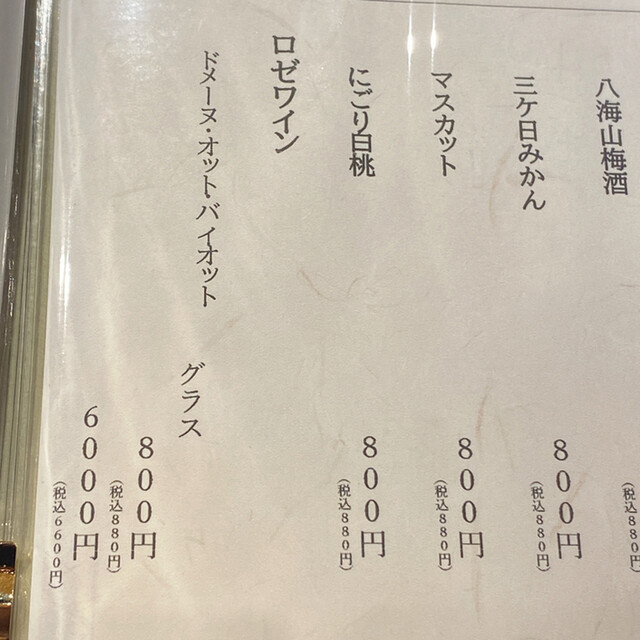 八海山梅酒
(税込880円)
三ケ日みかん
800円
(税込880円)
マスカット
800円
(税込880円)
にごり白桃
800円
(税込880円)
ロゼワイン
ドメーヌ・オット・バイオット
グラス
800円
(税込880円)
6000円
(税込6600円)